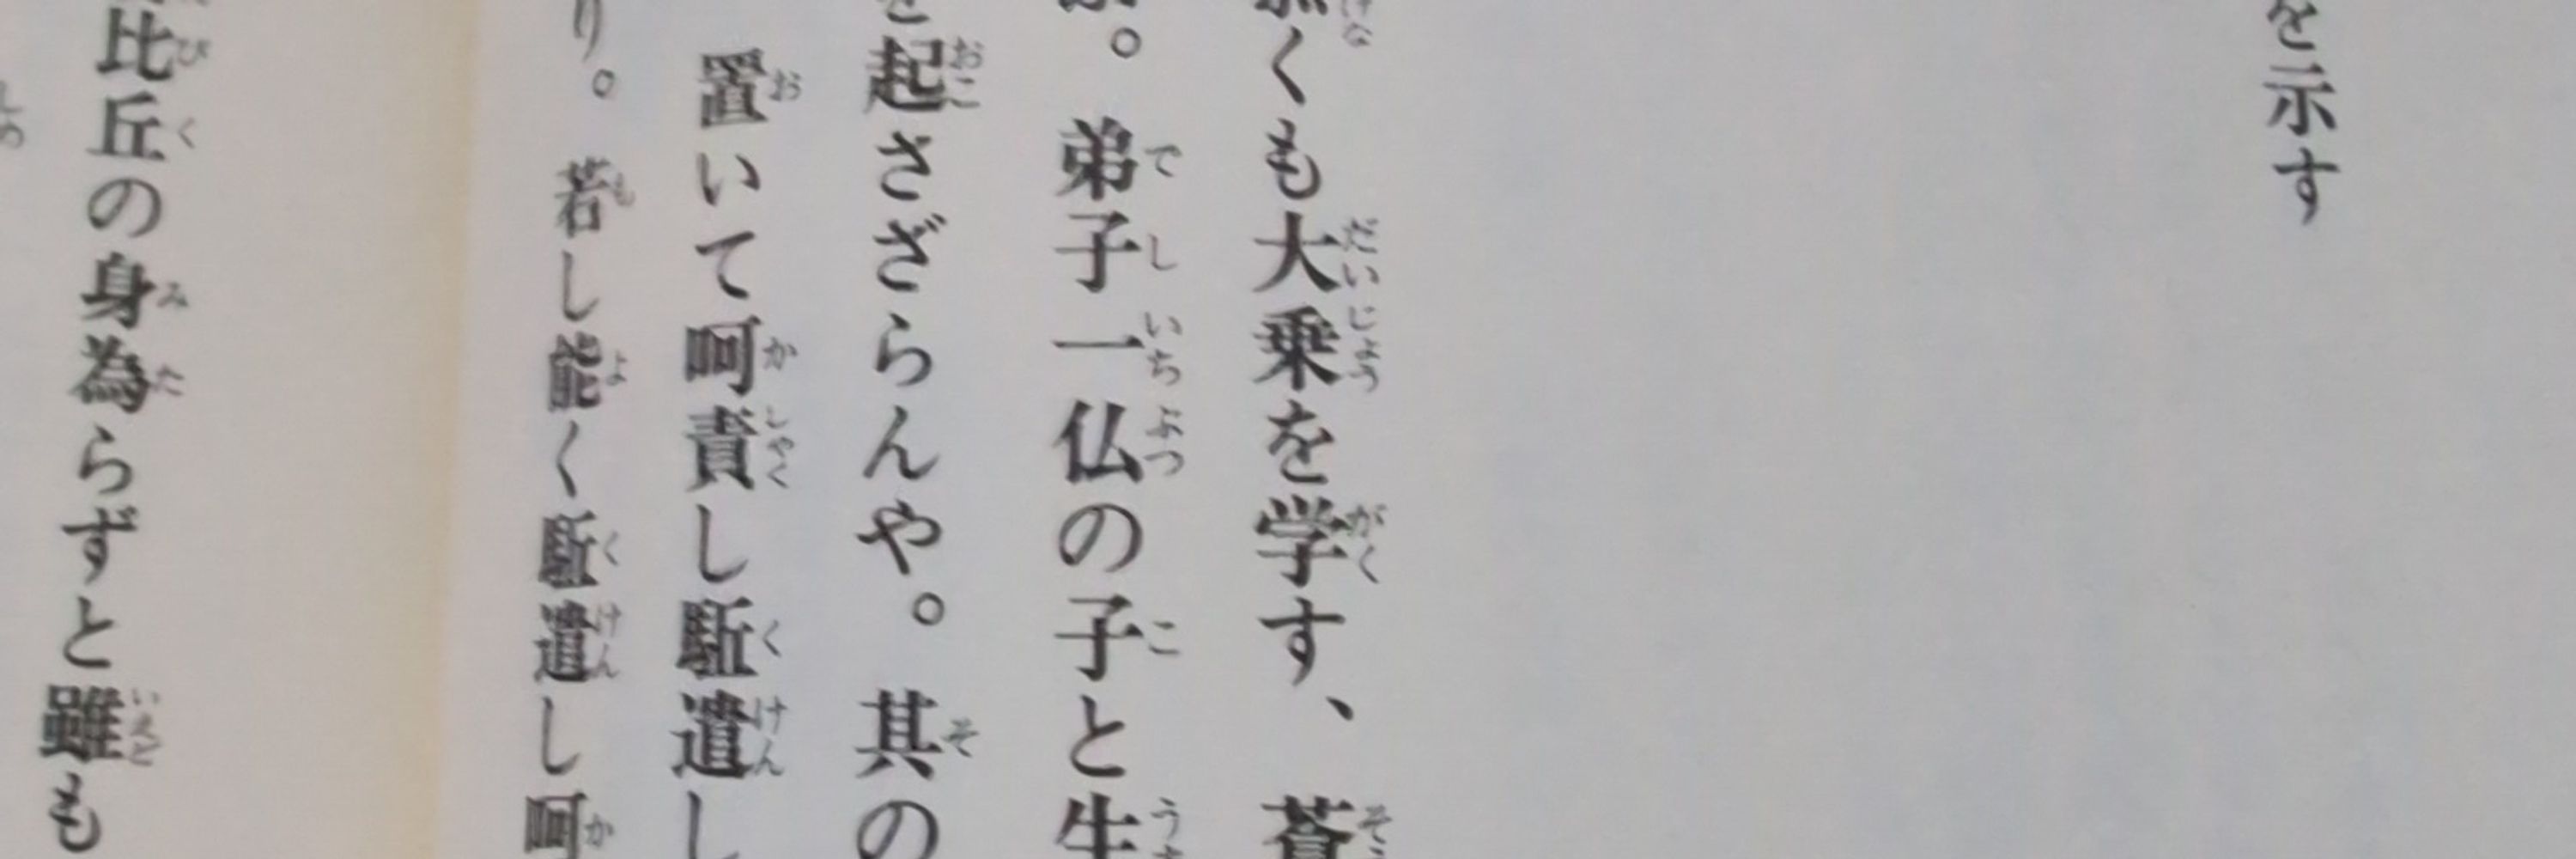 を示す
くも大乗を学す、蒼
。弟子一仏の子と生
を起さざらんや。其の
置いて呵責し駈遣し
り。若し能く駈遣し呵
比丘の身為らずと雖も